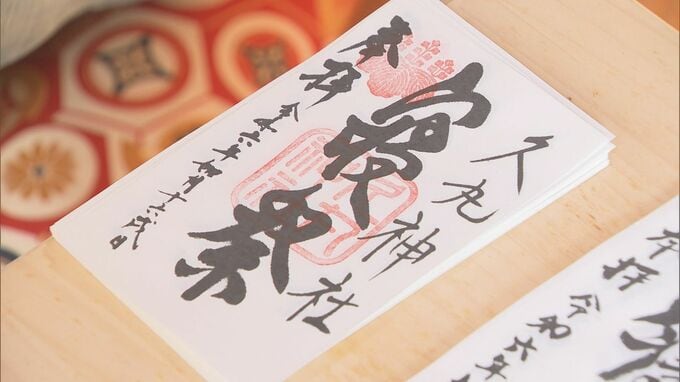 久丸神社
寝祭
奉拝
令和六年如月十六
奉拝
令和六年